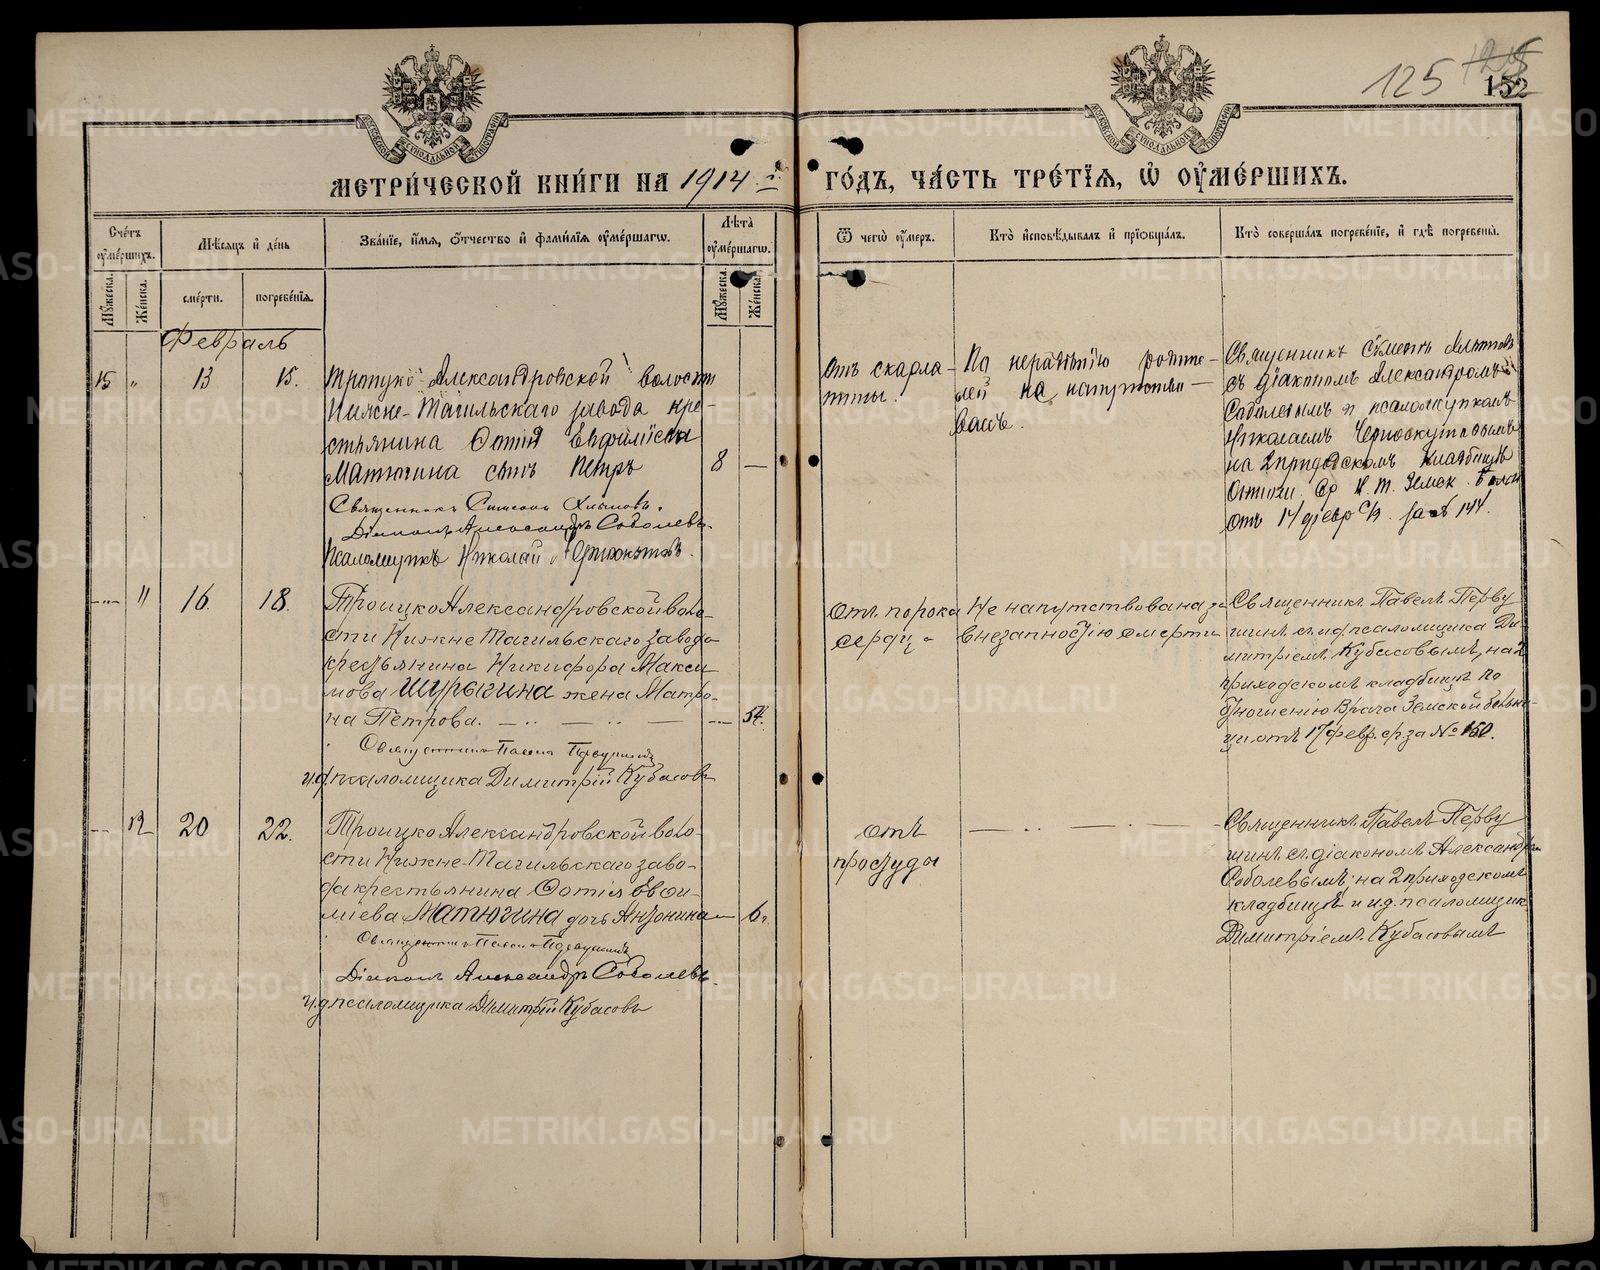 125
152
МОСКОВСКОЙ СѴНОДАЛЬНОЙ ТИПОГРАФІИ
МОСКОВСКОЙ СѴНОДАЛЬНОЙ ТИПОГРАФІИ
МЕТРИ́ЧЕСКОЙ КНИ́ГИ НА 1914 г.
ГО́ДЪ, ЧА́СТЬ ТРЕ́ТІѦ, Ѡ ОУ҆МЕ́РШИХЪ.
Сче́тъ оу҆ме́ршихъ.
Мꙋ́жеска.
Же́нска.
Мѣ́сѧцъ и҆ де́нь
сме́рти.
погребе́нїѧ.
Зва́нїе, и҆́мѧ, ѻ҆́тчество и҆ фами́лїѧ оу҆ме́ршагѡ.
Лѣ́та оу҆ме́ршагѡ.
Мꙋ́жеска.
Же́нска.
Ѿ чегѡ̀ оу҆́меръ.
Кто̀ и҆сповѣ́дывалъ и҆ прїѻбща́лъ.
Кто̀ соверша́лъ погребе́нїе, и҆ гдѣ̀ погребены̀.
Февраль
15 " 13 15.
Троицко-Александровской волости
Нижне-Тагильскаго завода кре-
стьянина Фотія Евфиміева
Матюгина сынъ Петръ 8 —
Священникъ Симеонъ
Діаконъ Александръ Соболевъ.
Псаломщикъ Николай
Отъ скарла-
тины.
По нерадѣнію родите-
лей не напутство-
ванъ.
Священникъ Симеонъ
съ діакономъ Александромъ
Соболевымъ и псаломщикомъ
Николаемъ
на 2 приходскомъ кладбищѣ
Отнош. Вр. Н. Т. Земск. больн
отъ 14 февр с/г. за № 144.
-„- " 16. 18.
Троицко Александровской воло-
сти Нижне Тагильскаго завода
крестьянина Никифора Макси-
мова Шурыгина жена Матро-
на Петрова. — .. — .. — -„- 54.
Священникъ Павелъ Первушинъ
и.д. псаломщика Димитрій Кубасовъ
Отъ порока
сердца
Не напутствована за
внезапностію смерти
Священникъ Павелъ Перву
шинъ съ и.д. псаломщика Ди-
митріемъ Кубасовымъ, на 2
приходскомъ кладбищѣ по
отношенію Врача Земской больни-
цы отъ 17 февр. с/г. за № 150.
-„- 12 20 22.
Троицко Александровской воло-
сти Нижне-Тагильскаго заво-
да крестьянина Фотія Евфи-
міева Матюгина дочь Антонина — 6 г.
Священникъ Павелъ Первушинъ
Діаконъ Александръ Соболевъ.
и.д. псаломщика Димитрій Кубасовъ
отъ
простуды
— .. — .. —
Священникъ Павелъ Перву
шинъ съ діакономъ Александромъ
Соболевымъ, на 2 приходскомъ
кладбищѣ и и.д. псаломщик
Димитріемъ Кубасовымъ
METRIKI.GASO-URAL.RU